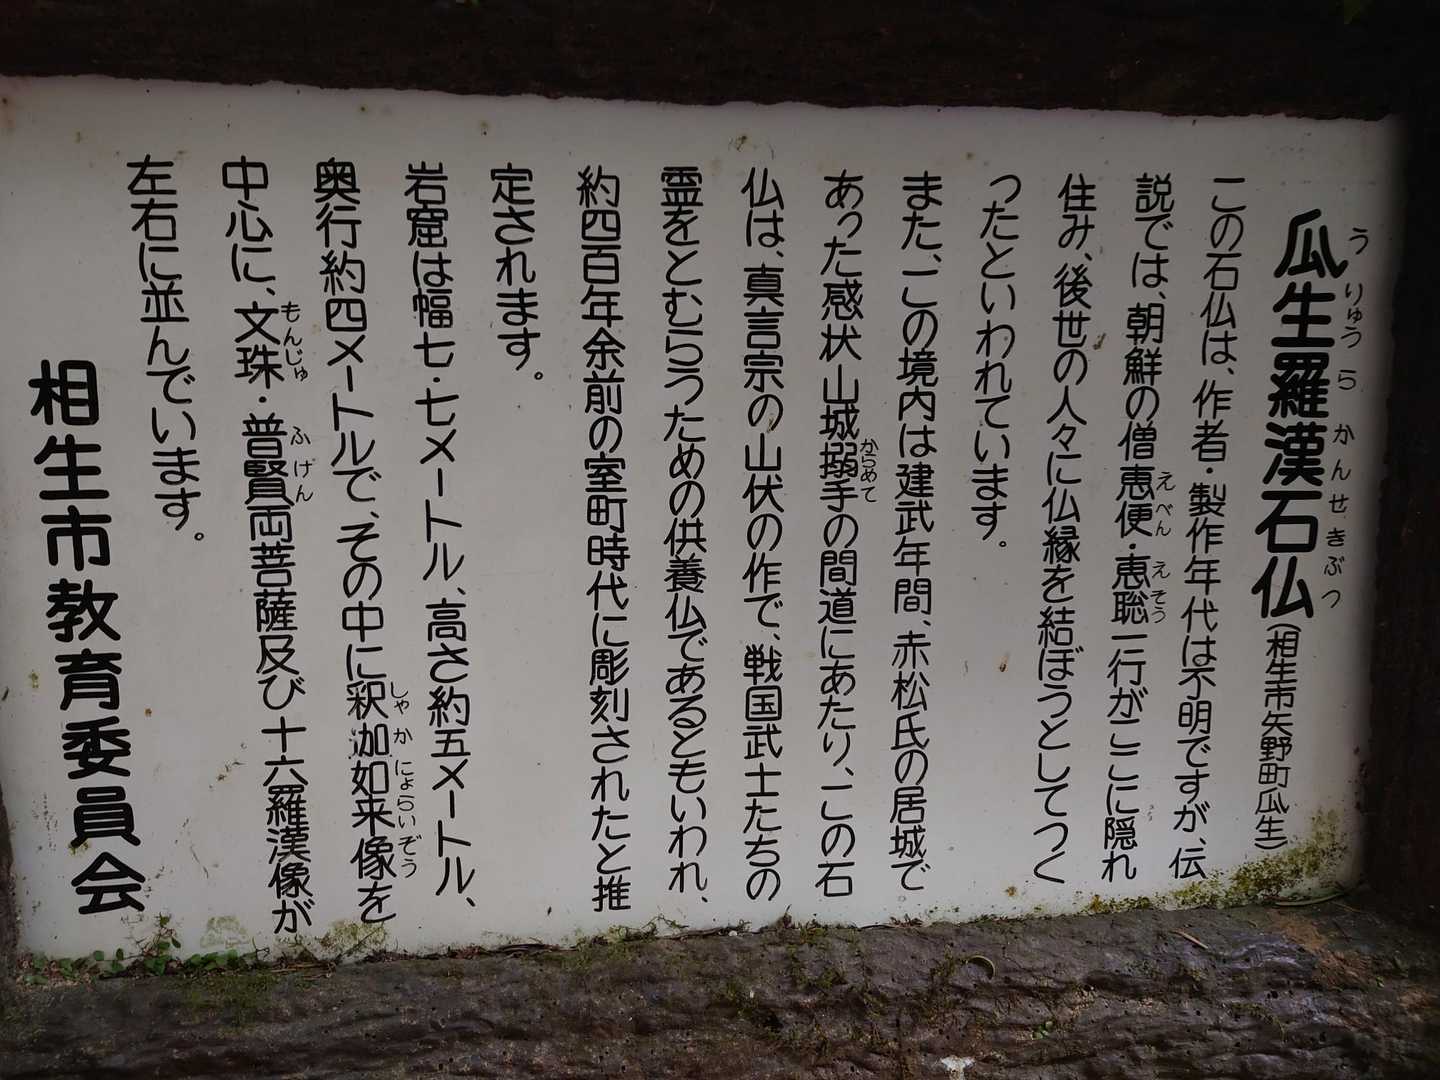 瓜生羅漢石仏(相生市矢野町瓜生)
うりゅうらかんせきぶつ
この石仏は、作者・製作年代は不明ですが、伝
説では、朝鮮の僧恵便・恵聡二行がここに隠れ
えべん えそう
住み、後世の人々に仏縁を結ぼうとしてつく
ったといわれています。
また、この境内は建武年間、赤松氏の居城で
あった感状山城搦手の間道にあたり、この石
からめて
仏は、真言宗の山伏の作で、戦国武士たちの
霊をとむらうための供養仏であるともいわれ、
約四百年余前の室町時代に彫刻されたと推
定されます。
岩窟は幅七・七メートル、高さ約五メートル、
奥行約四メートルで、その中に釈迦如来像を
しゃかにょらいぞう
中心に、文珠・普賢両菩薩及び十六羅漢像が
もんじゅ ふげん
左右に並んでいます。
相生市教育委員会